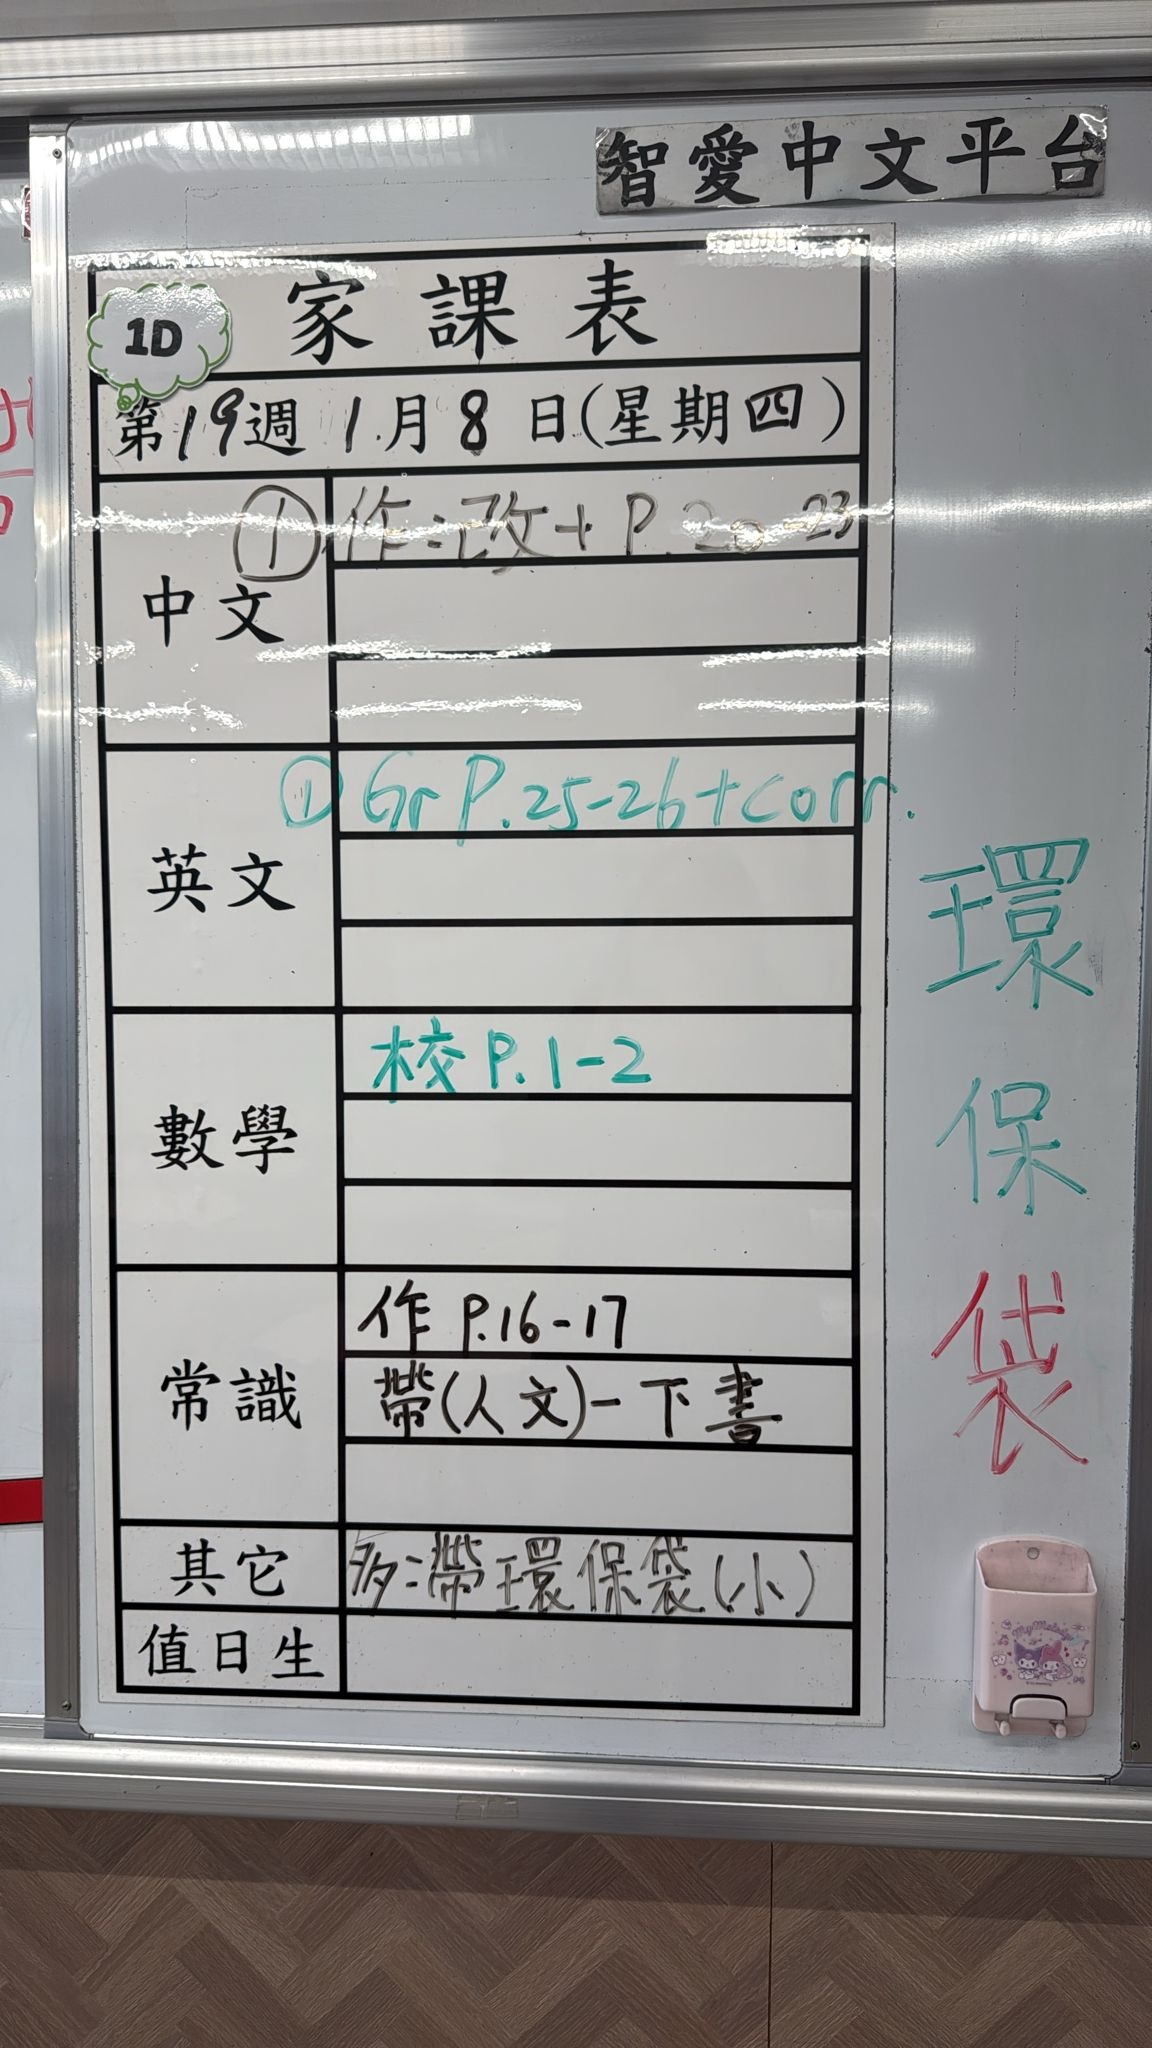 智愛中文平台
家課表
1D
第19週 1月8日(星期四)
中文
① 作:改+P.20-23
英文
① Gr P.25-26+corr.
數學
校P.1-2
常識
作 P.16-17
帶(人文)一下書
其它
多:帶環保袋(小)
值日生
環保袋
My Melody